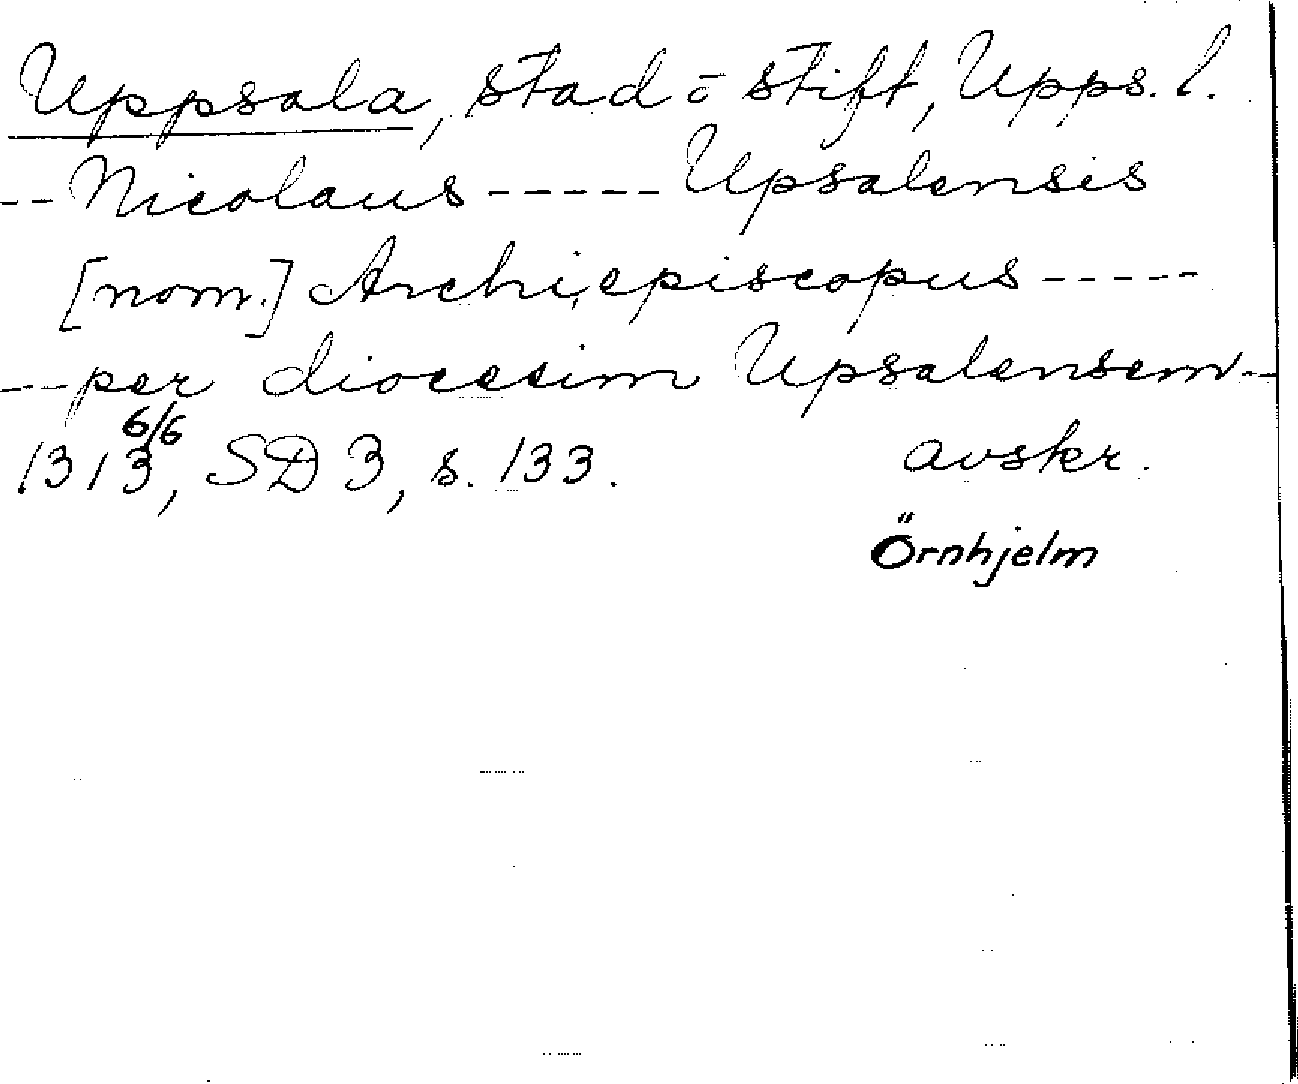 Uppsala, stad o stift, Upps. l.
-- Nicolaus ----- Upsalensis
[nom.] Archiepiscopus -----
-- per diocesim Upsalensem --
1313 6/6, SD 3, s. 133. avskr.
Örnhjelm